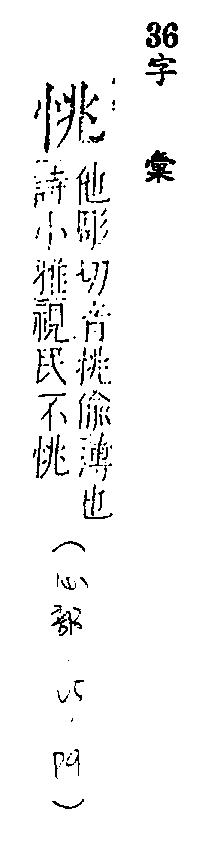 36字彙
恌
他彫切音挑偷薄也
詩小雅視民不恌
（心部．